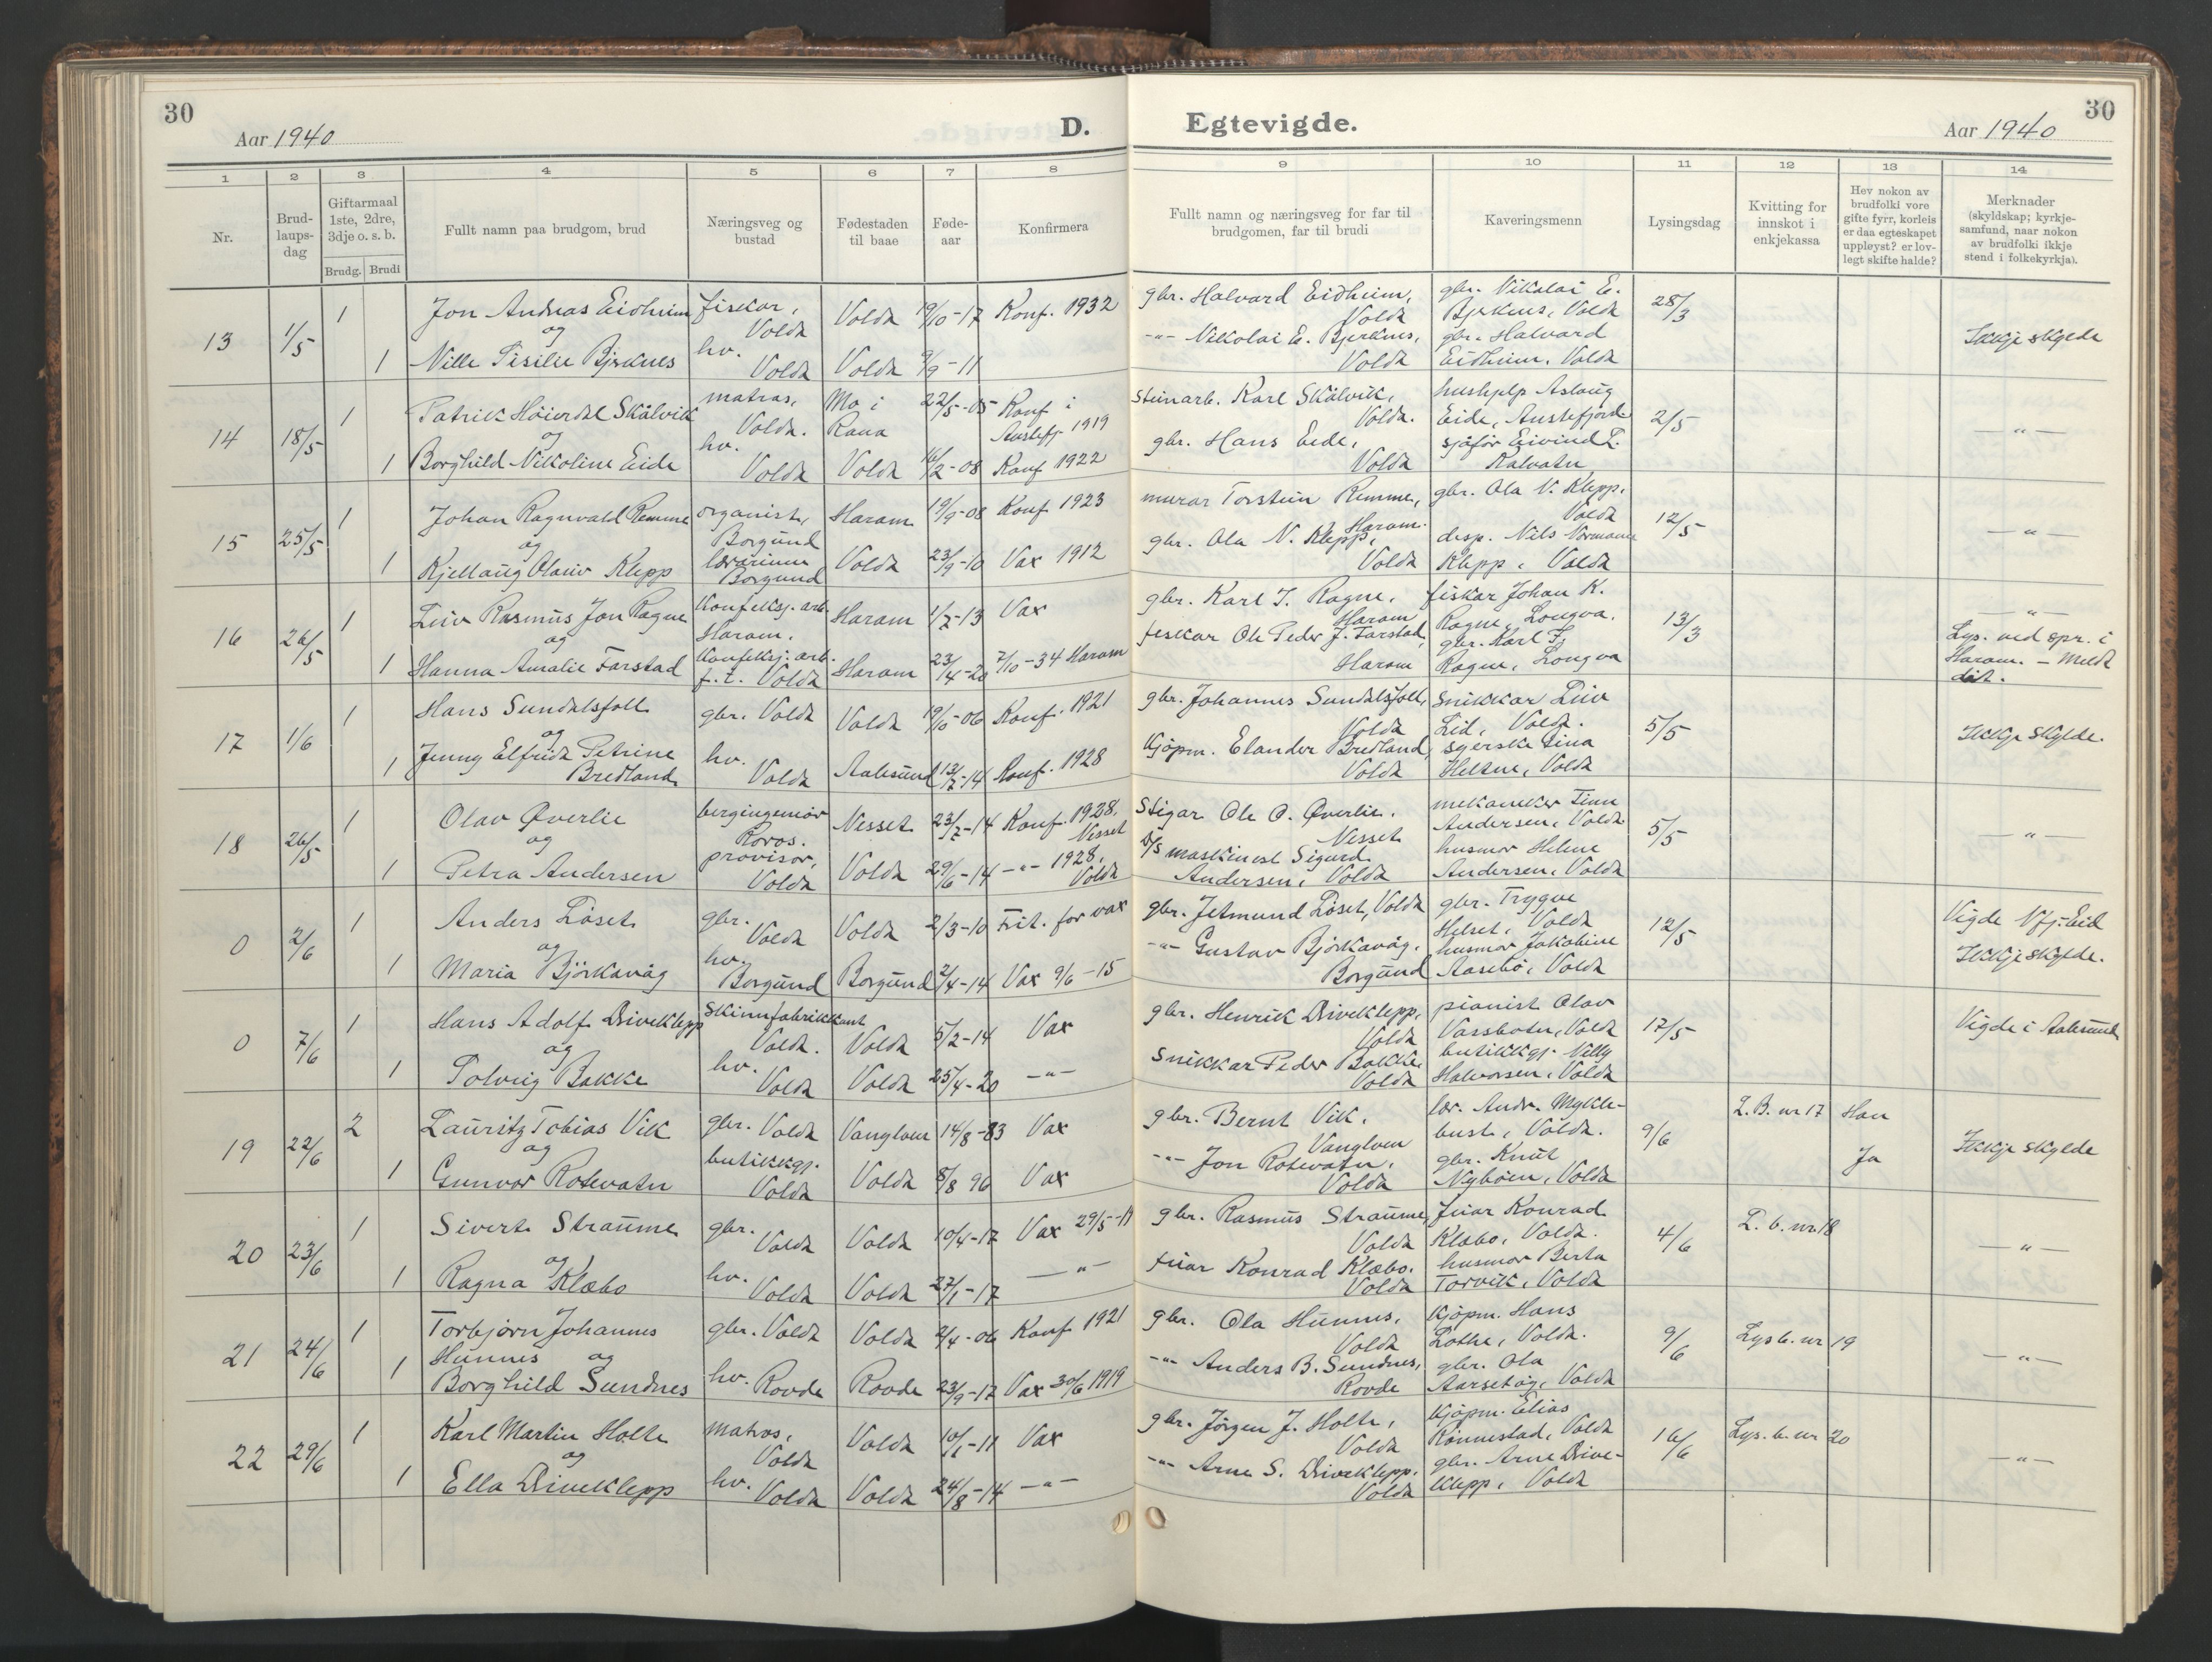 30
Aar 1940
D.
Egtevigde.
Aar 1940
30
1 2 3 4 5 6 7 8 9 10 11 12 13 14
Nr.
Brud-
laups-
dag
Giftarmaal
1ste, 2dre,
3dje o. s. b.
Brudg. Brudi
Fullt namn paa brudgom, brud
Næringsveg og
bustad
Fødestaden
til baae
Føde-
aar
Konfirmera
Fullt namn og næringsveg for far til
brudgomen, far til brudi
Kaveringsmenn
Lysingsdag
Kvitting for
innskot i
enkjekassa
Hev nokon av
brudfolki vore
gifte fyrr, korleis
er daa egteskapet
uppløyst? er lov-
legt skifte halde?
Merknader
(skyldskap; kyrkje-
samfund, naar nokon
av brudfolki ikkje
stend i folkekyrkja).
13 1/5
1 Jon Andreas Eidheim fiskar, Volda Volda 19/10-17 Konf. 1932
og
1 Nille Sisilie Bjerknes hv. Volda Volda 9/9-11
gbr. Halvard Eidheim, Volda
-"- Nikolai E. Bjerknes, Volda
gbr. Nikolai E.
Bjerknes, Volda
gbr. Halvard
Eidheim. Volda
28/3
Ikkje skylde
14 18/5
1 Patrick Höierdal Skålvik matros, Volda. Mo i Rana 22/5-05 Konf i Austefj. 1919
og
1 Borghild Nikoline Eide hv. Volda Volda 16/2-08 Konf 1922
Steinarb. Karl Skålvik, Volda.
gbr. Hans Eide, Volda
hushjelp Aslaug
Eide, Austefjord
sjåför Eivind L.
Kalvatn
2/5
-"-
15 25/5
1 Johan Ragnvald Remme organist, Borgund Haram 19/9-08 Konf 1923
og
1 Kjellaug Olaux Klepp lærarinne Borgund Volda 23/9-10 Vax 1912
murar Torstein Remme, Haram.
gbr. Ola N. Klepp, Volda
gbr. Ola N. Klepp,
Volda
disp. Nils Normann
Klepp, Volda
12/5
-"-
16 26/5
1 Leiv Rasmus Jon Rogne Konfeksj. arb. Haram. Haram 1/2-13 Vax
og
1 Hanna Amalie Farstad Konfeksj. arb. f. t. Volda Haram 23/4-20 7/10-34 Haram
gbr. Karl J. Rogne, Haram
fiskar Ole Peder J. Farstad, Haram
fiskar Johan K.
Rogne, Longva.
gbr. Karl J.
Rogne, Longva
13/3
-"-
Lys. ved spr. i
Haram. - Meldt
dit.
17 1/6
1 Hans Sundalsfoll gbr. Volda Volda 19/10-06 Konf. 1921
og
1 Jenny Elfrida Petrine
Bredland hv. Volda Aalesund 13/2-14 Konf. 1928
gbr. Johannes Sundalsfoll, Volda
Kjöpm. Elander Bredland, Volda
Snikkar Leiv
Lid, Volda.
syerske Lina
Helsne, Volda
5/5
Ikkje skylde.
18 26/5
1 Olav Øverlie bergingeniør Röros. Nesset 23/2-14 Konf. 1928. Nesset
og
1 Petra Andersen provisor, Volda Volda 29/6-14 -"- 1928, Volda
Stigar Ole O. Øverlie. Nesset
D/S maskinist Sigurd
Andersen, Volda
mekaniker Finn
Andersen, Volda
husmor Helene
Andersen, Volda
5/5
-"-
0 2/6
1 Anders Löset gbr. Volda Volda 2/3-10 Frit. for vax
og
1 Maria Björkavåg hv. Borgund Borgund 2/4-14 Vax 9/6-15
gbr. Jetmund Löset, Volda
-"- Gustav Björkavåg, Borgund
gbr. Trygve
Helset, Volda
husmor Jakobine
Aasebö, Volda
12/5
Vigde Nfj-Eid
Ikkje skylde.
0 7/6
1 Hans Adolf Driveklepp skinnfabrikkant Volda. Volda 5/2-14 Vax
og
1 Solveig Bakke hv. Volda Volda 25/4-20 -"-
gbr. Henrik Driveklepp, Volda
Snikkar Peder Bakke, Volda
pianist Olav
Vassbotn, Volda
butikkgj. Nilly
Halvorsen, Volda
17/5
Vigde i Aalesund
19 22/6
2 Lauritz Tobias Vik gbr. Volda Vanylven 14/8-83 Vax
og
1 Gunvor Rotevatn butikkgj. Volda Volda 8/8 96 Vax
gbr. Bernt Vik, Vanylven
-"- Jon Rotevatn, Volda
lær. Andr. Mykle-
bust, Volda.
gbr. Knut
Nyböen, Volda
9/6
L. B. nr 17
Han
Ja
Ikkje skylde
20 23/6
1 Sivert Straume gbr. Volda Volda 10/4-17 Vax 29/5-19
og
1 Ragna Klæbo hv. Volda Volda 27/1-17 -"-
gbr. Rasmus Straume, Volda
fiuar Konrad Klæbo. Volda
fuiar Konrad
Klæbo, Volda.
husmor Berta
Torvik, Volda
4/6
L. b. nr. 18
-"-
21 24/6
1 Torbjörn Johannes
Hunnes gbr. Volda Volda 2/4-06 Konf 1921
og
1 Borghild Sundnes hv. Rovde Rovde 23/9-17 Vax 30/6 1919
gbr. Ola Hunnes, Volda
-"- Anders B. Sundnes, Rovde
Kjöpm. Hans
Lothe, Volda.
gbr. Ola
Aarsetög, Volda
9/6
Lysb. nr 19
-"-
22 29/6
1 Karl Martin Holte matros, Volda Volda 10/1-11 Vax
og
1 Ella Driveklepp hv. Volda Volda 24/8-14 -"-
gbr. Jörgen J. Holte, Volda
-"- Arne S. Driveklepp, Volda
Kjöpm. Elias
Rönnestad, Volda
gbr. Arne Drive-
klepp, Volda
16/6
Lys. b. nr 20
-"-